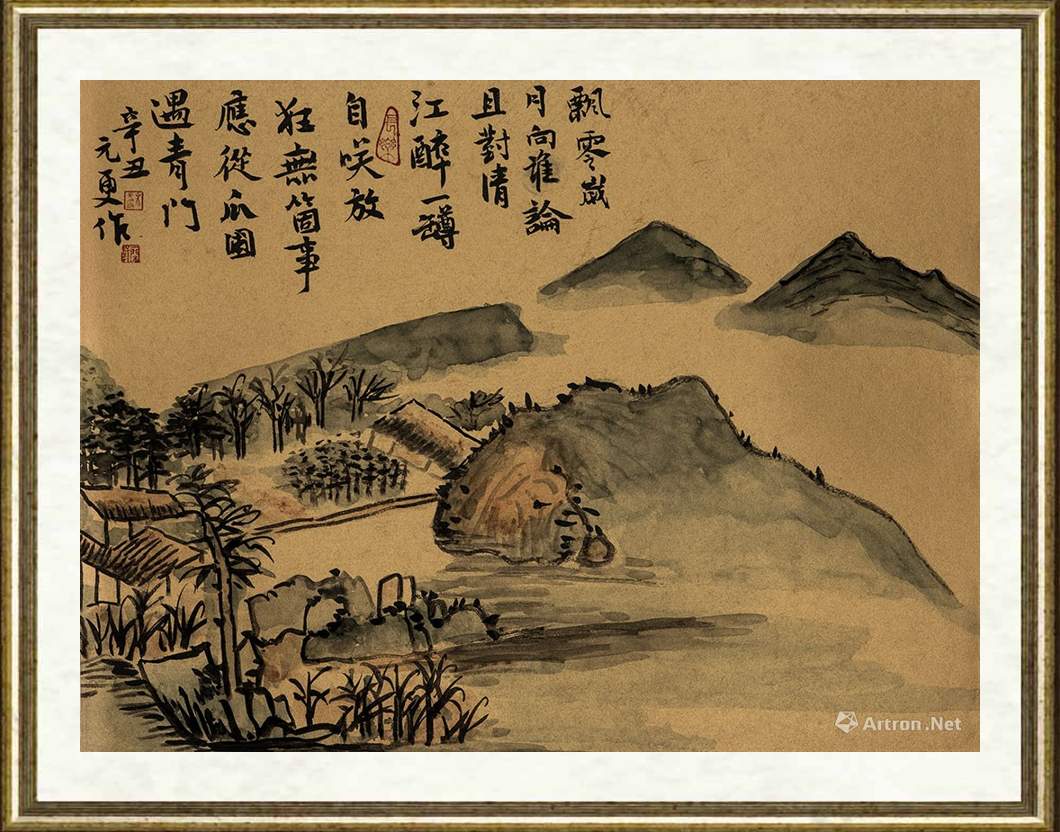 飄零歲
月向誰論
且對清
江醉一罇
自咲放
狂無箇事
應從瓜園
遇青門
辛丑
元更作
Artron.Net